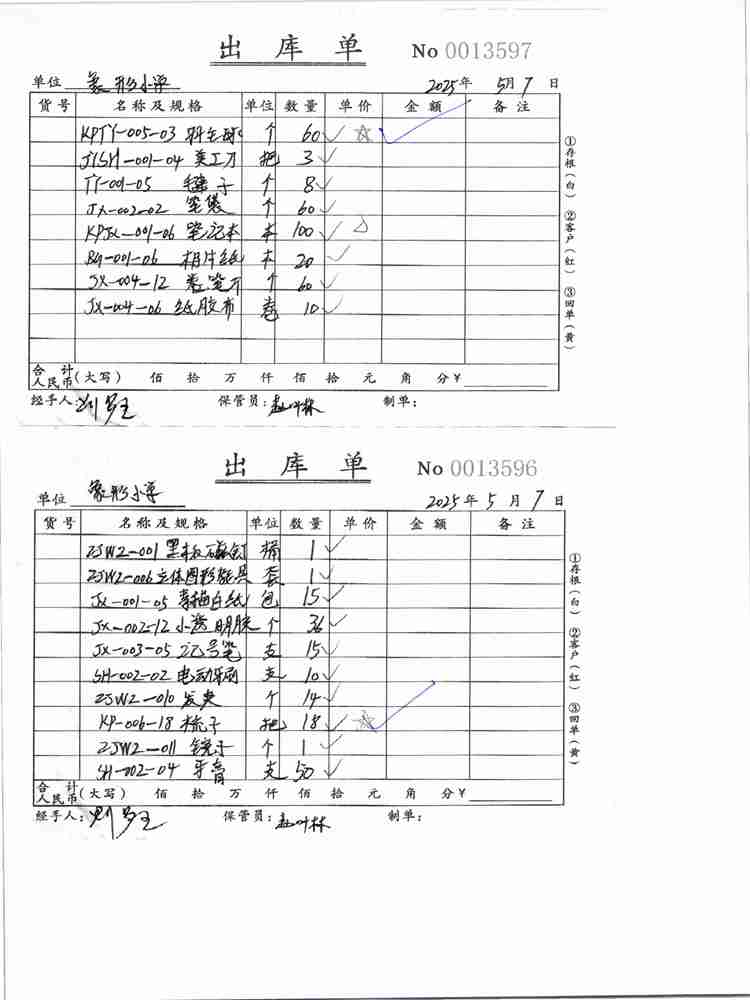 出 库 单 No 0013597
单位 象形小学 2025年 5月 7 日
货号 名称及规格 单位 数量 单价 金额 备注
KPTY-005-03 个 60 ✓ ☆ ✓
JYSH-001-04 美工刀 把 3 ✓
TY-001-05 毽子 个 8 ✓
JX-002-02 笔袋 个 60 ✓
KPJX-001-06 笔记本 本 100 ✓ △
BG-001-06 相片纸 本 20 ✓
JX-004-12 卷笔刀 个 60 ✓
JX-004-06 纸胶布 卷 10 ✓
合计人民币(大写) 佰 拾 万 仟 佰 拾 元 角 分 ¥
经手人: 保管员: 制单:
①存根(白) ②客户(红) ③回单(黄)
出 库 单 No 0013596
单位 象形小学 2025年 5 月 7 日
货号 名称及规格 单位 数量 单价 金额 备注
ZJW2-001 黑板磁钉 桶 1 ✓
ZJW2-006 立体图形教具 套 1 ✓
JX-001-05 素描白纸 包 15 ✓
JX-002-12 小透明胶 个 36 ✓
JX-003-05 记号笔 支 15 ✓
SH-002-02 电动牙刷 支 10 ✓
ZJW2-010 发夹 个 14 ✓
KP-006-18 梳子 把 18 ✓ ☆ ✓
ZJW2-011 镜子 个 1 ✓
SH-002-04 牙膏 支 50 ✓
合计人民币(大写) 佰 拾 万 仟 佰 拾 元 角 分 ¥
经手人: 保管员: 制单:
①存根(白) ②客户(红) ③回单(黄)